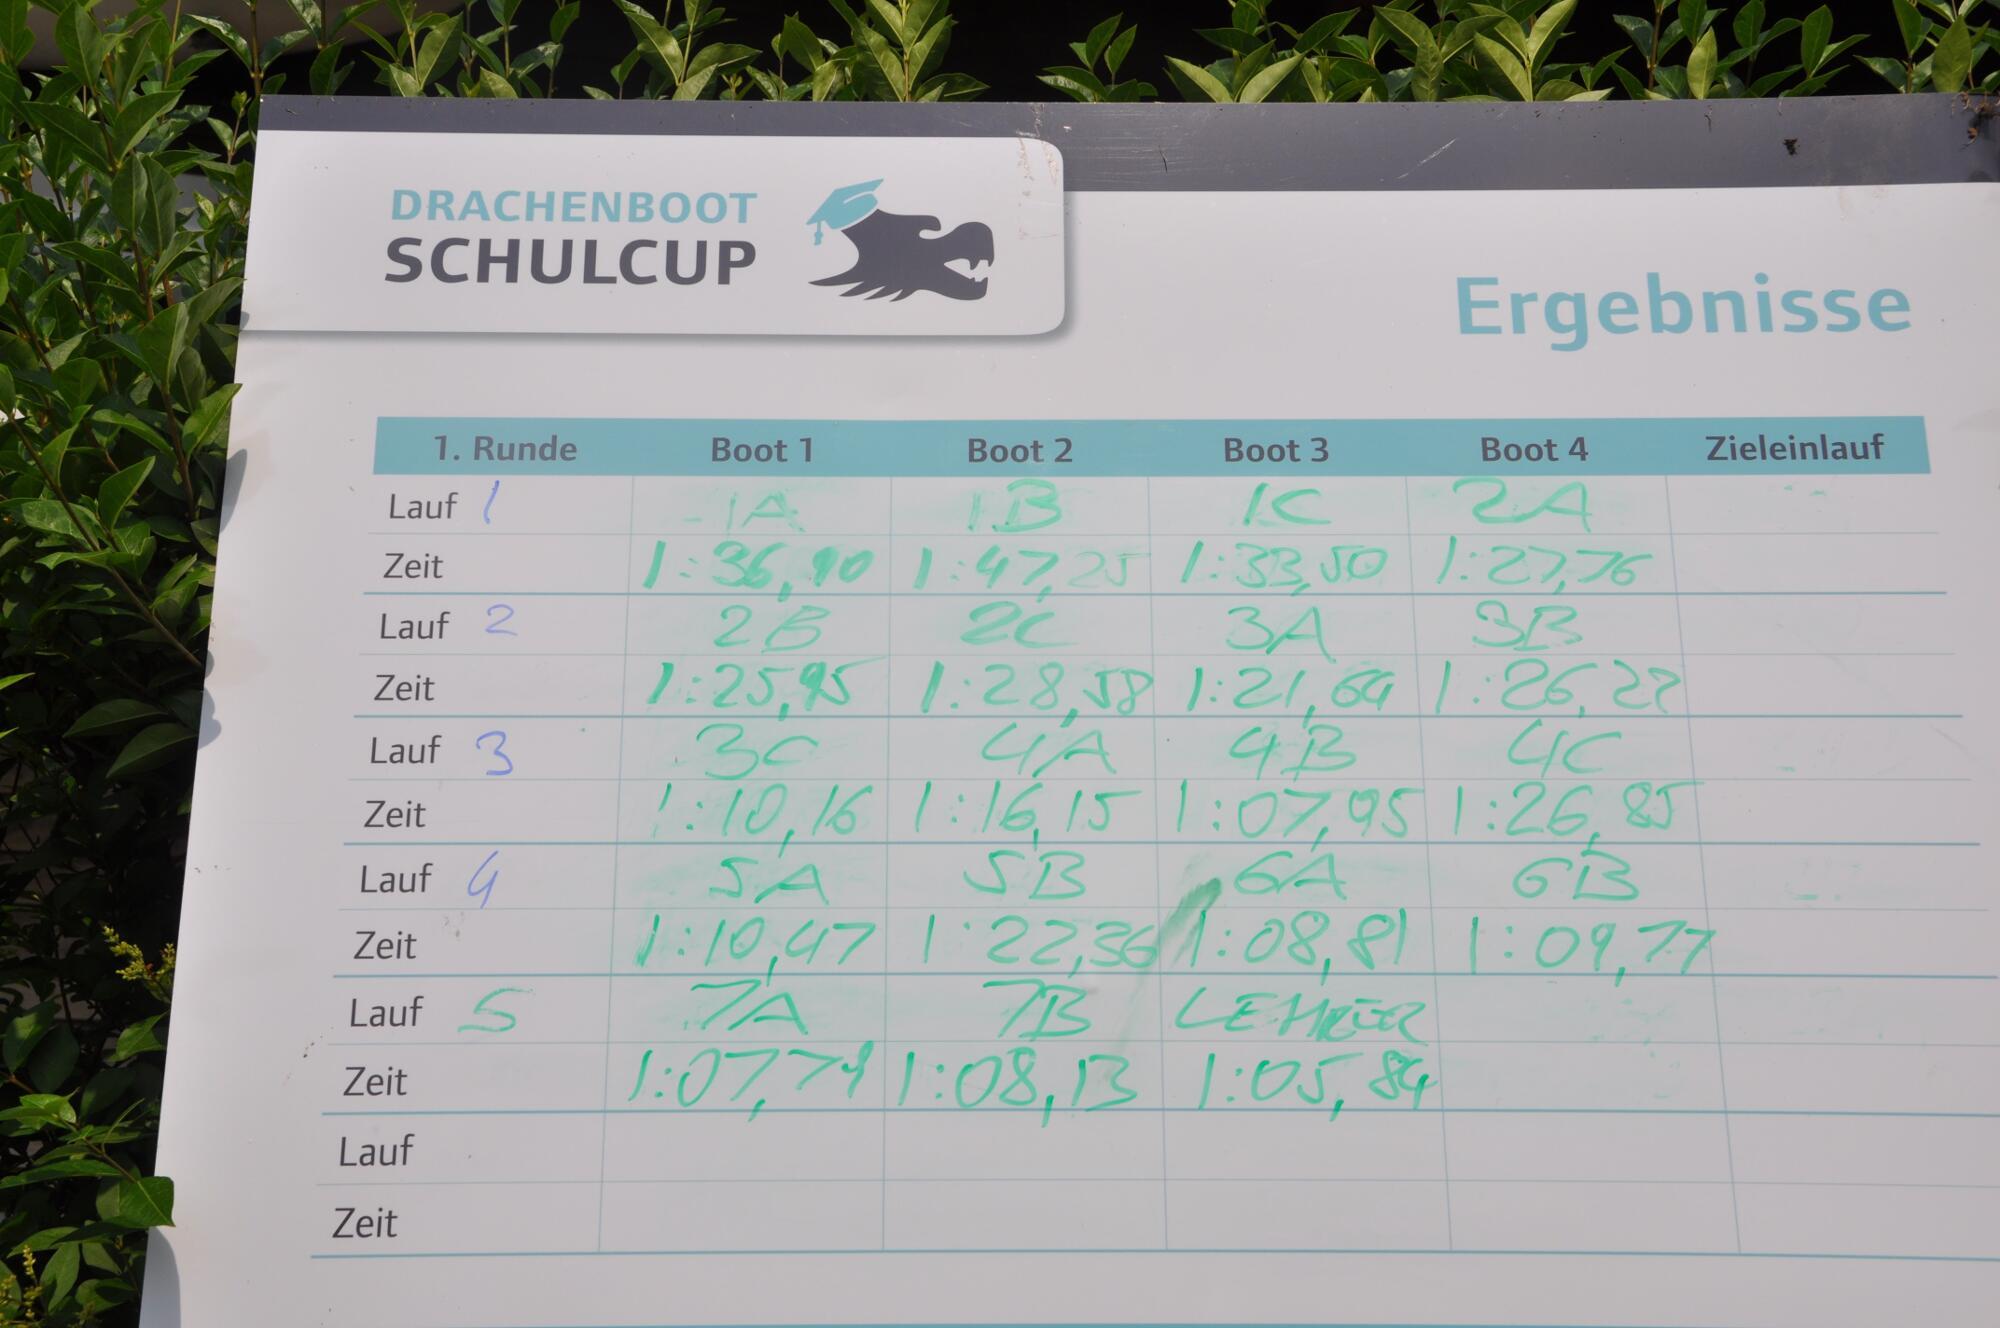 DRACHENBOOT
SCHULCUP
Ergebnisse
1. Runde Boot 1 Boot 2 Boot 3 Boot 4 Zieleinlauf
Lauf 1 1A 1B 1C 2A
Zeit 1:36,90 1:47,25 1:33,50 1:27,76
Lauf 2 2B 2C 3A 3B
Zeit 1:25,95 1:28,58 1:21,64 1:26,22
Lauf 3 3C 4A 4B 4C
Zeit 1:10,16 1:16,15 1:07,95 1:26,85
Lauf 4 5A 5B 6A 6B
Zeit 1:10,47 1:22,36 1:08,81 1:09,77
Lauf 5 7A 7B LEHRER
Zeit 1:07,79 1:08,13 1:05,84
Lauf
Zeit